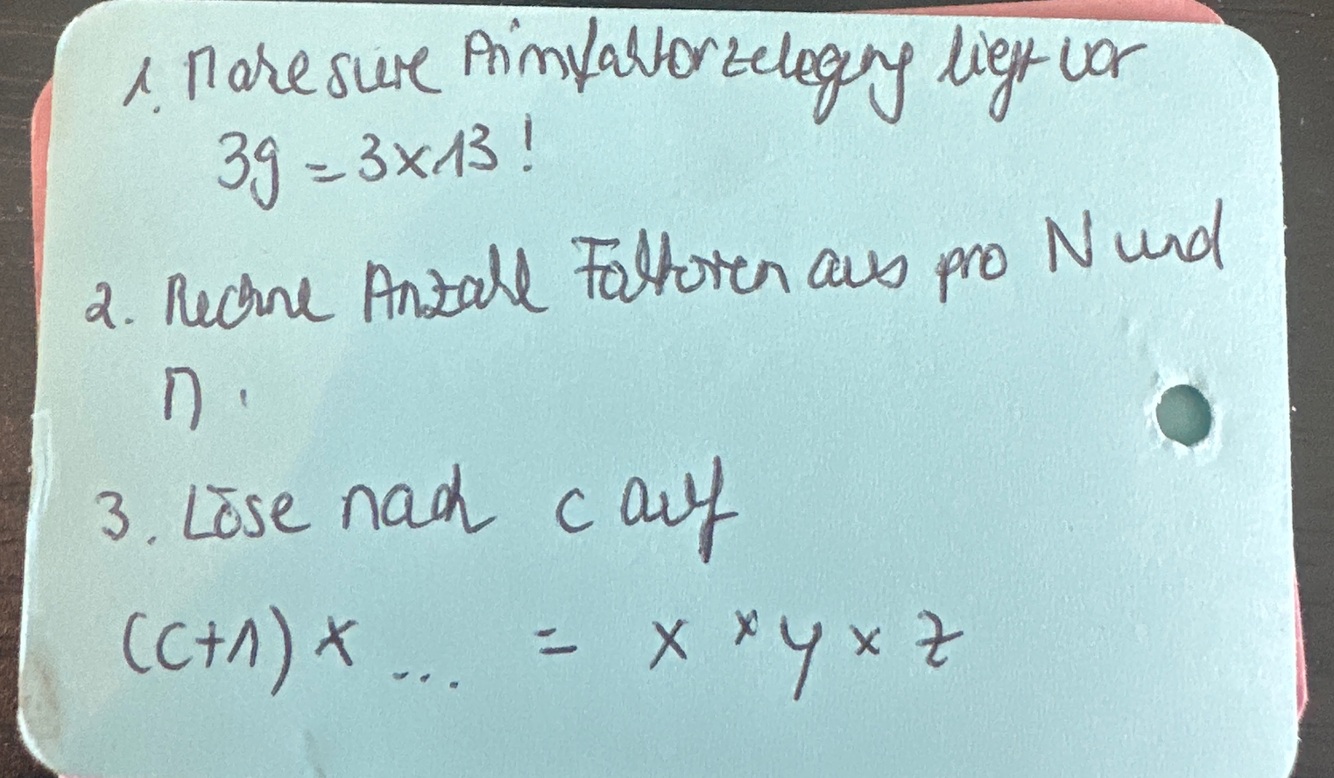 1. Make sure Primfaktorzelegung liegt vor
39 = 3x13!
2. Rechne Anzahl Faktoren aus pro N und
n.
3. Löse nach c auf
(c+1) x ... = x x y x z